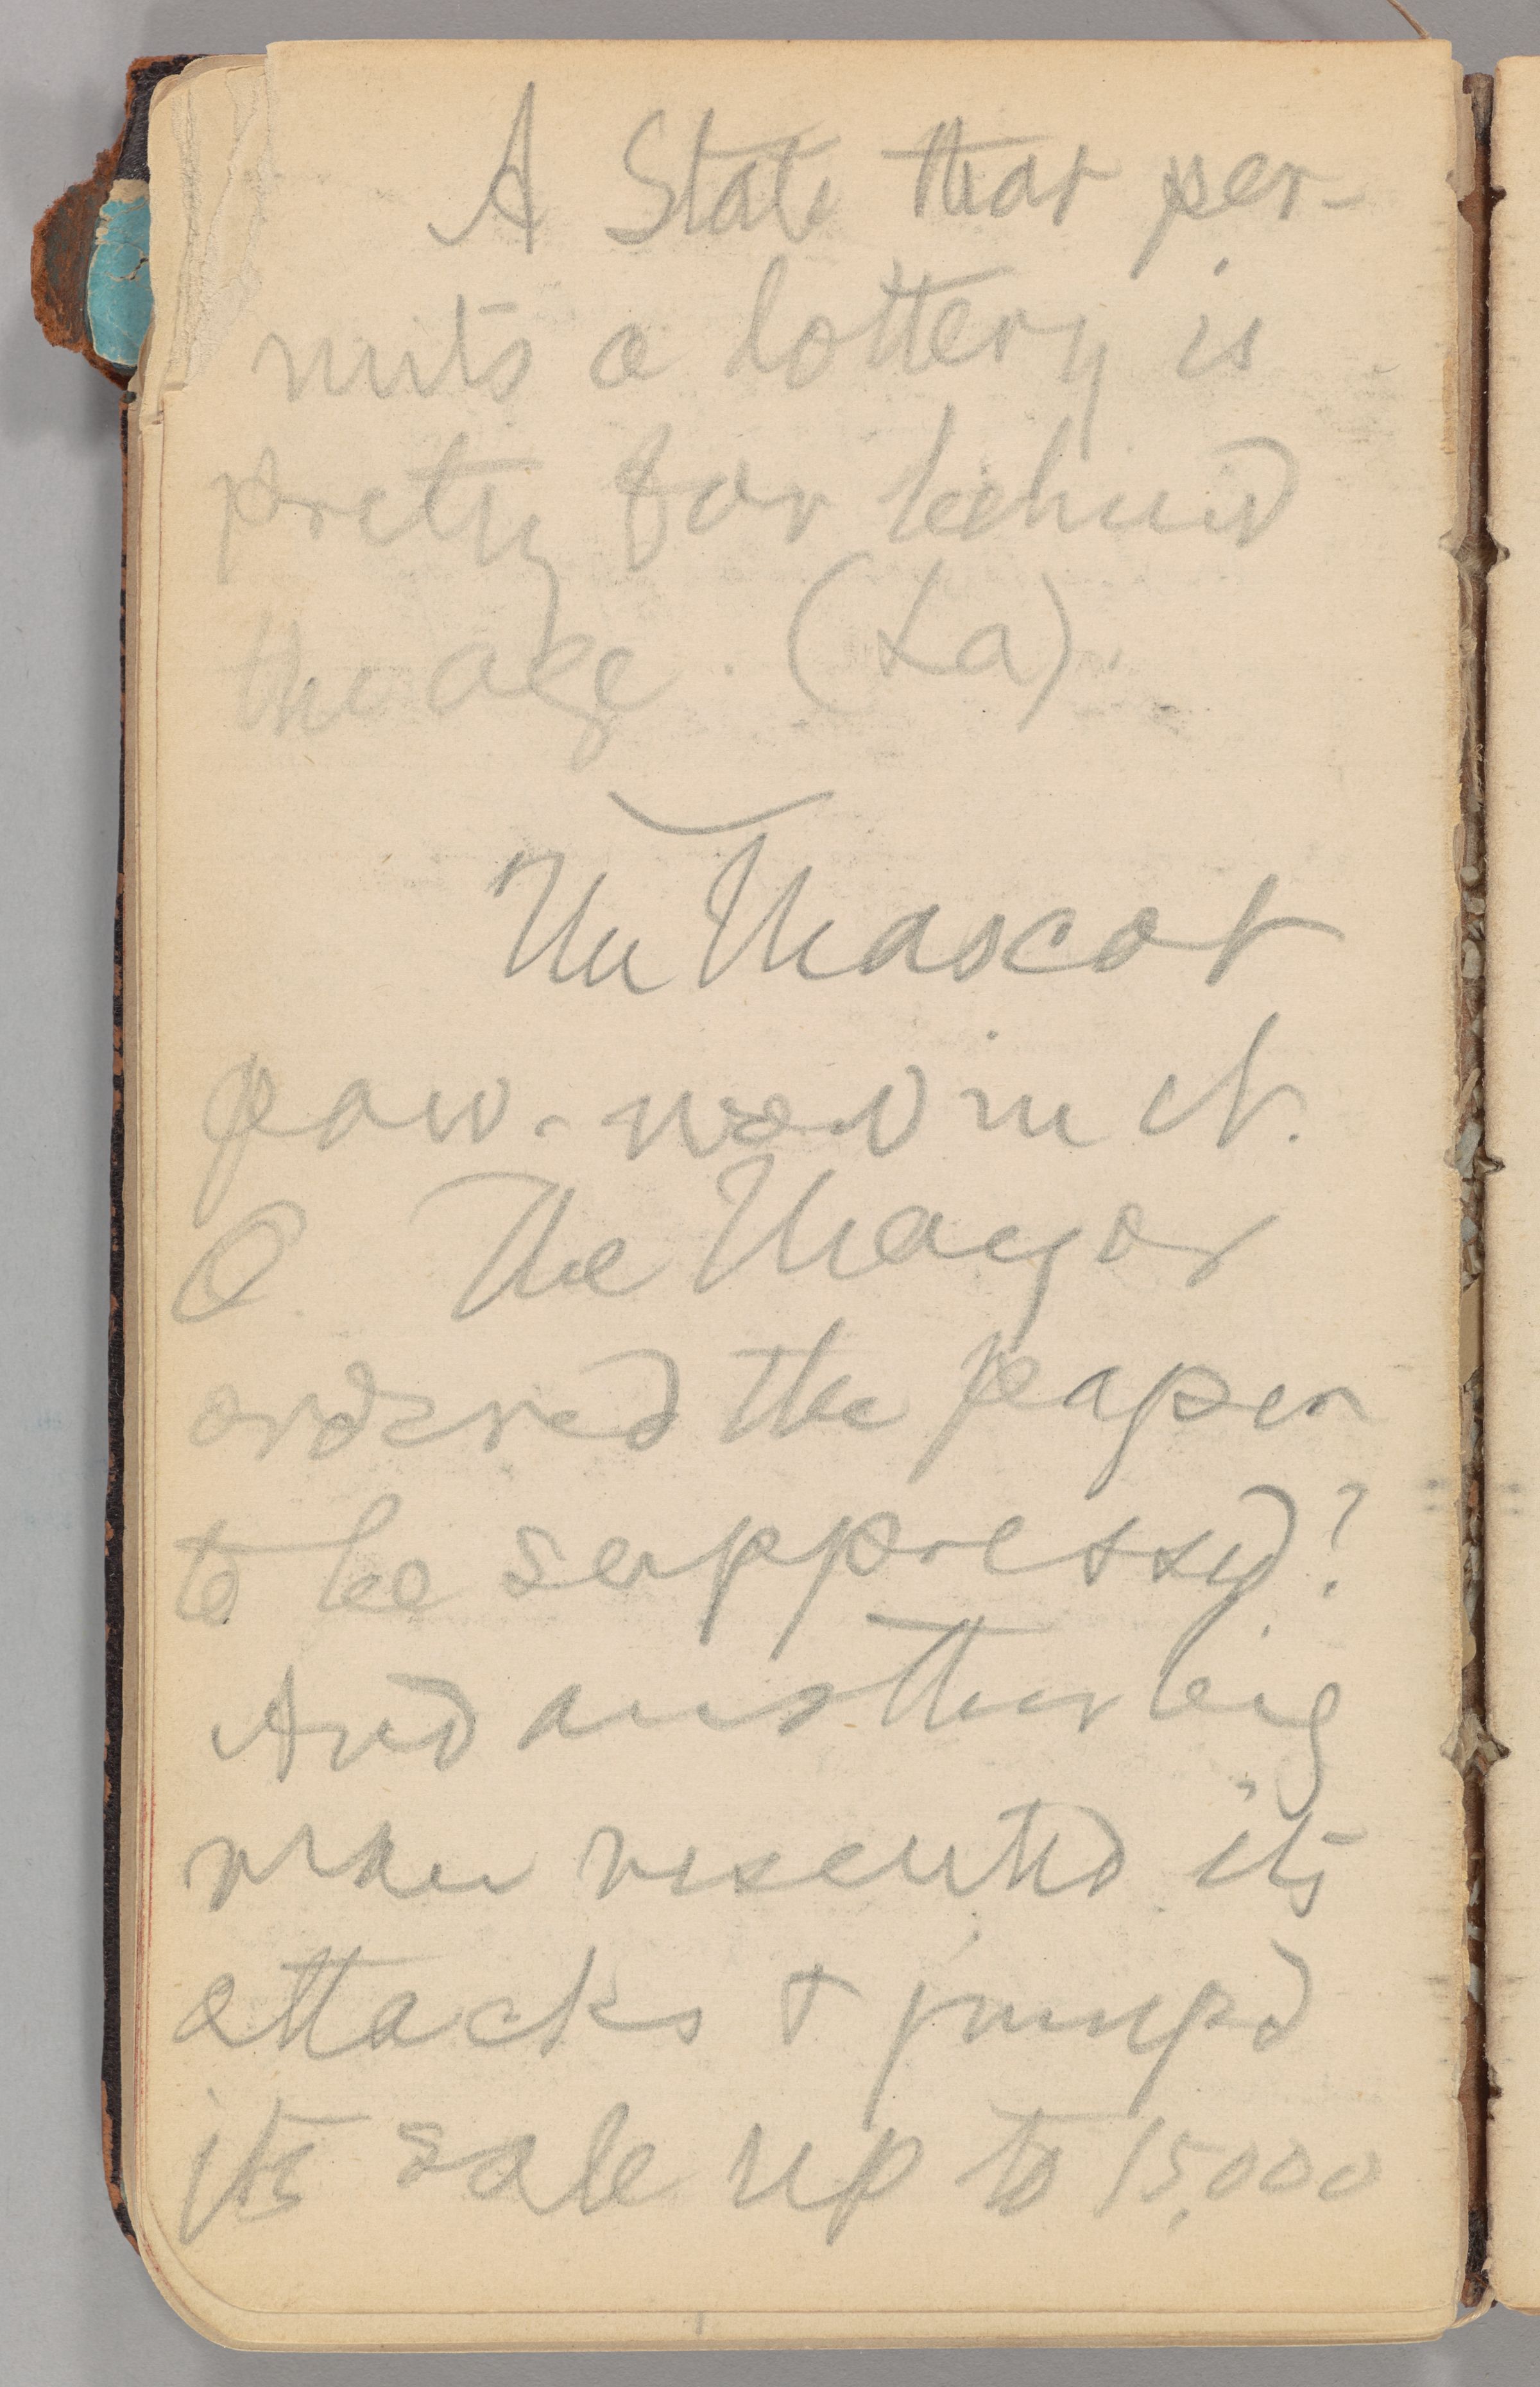 A State that per-
mits a lottery is
pretty far behind
the age. (La).
The Mascot
pow-wow in N.
O. The Mayor
ordered the paper
to be suppressed?
And another big
man resented its
attacks & jumped
its sale up to 15,000